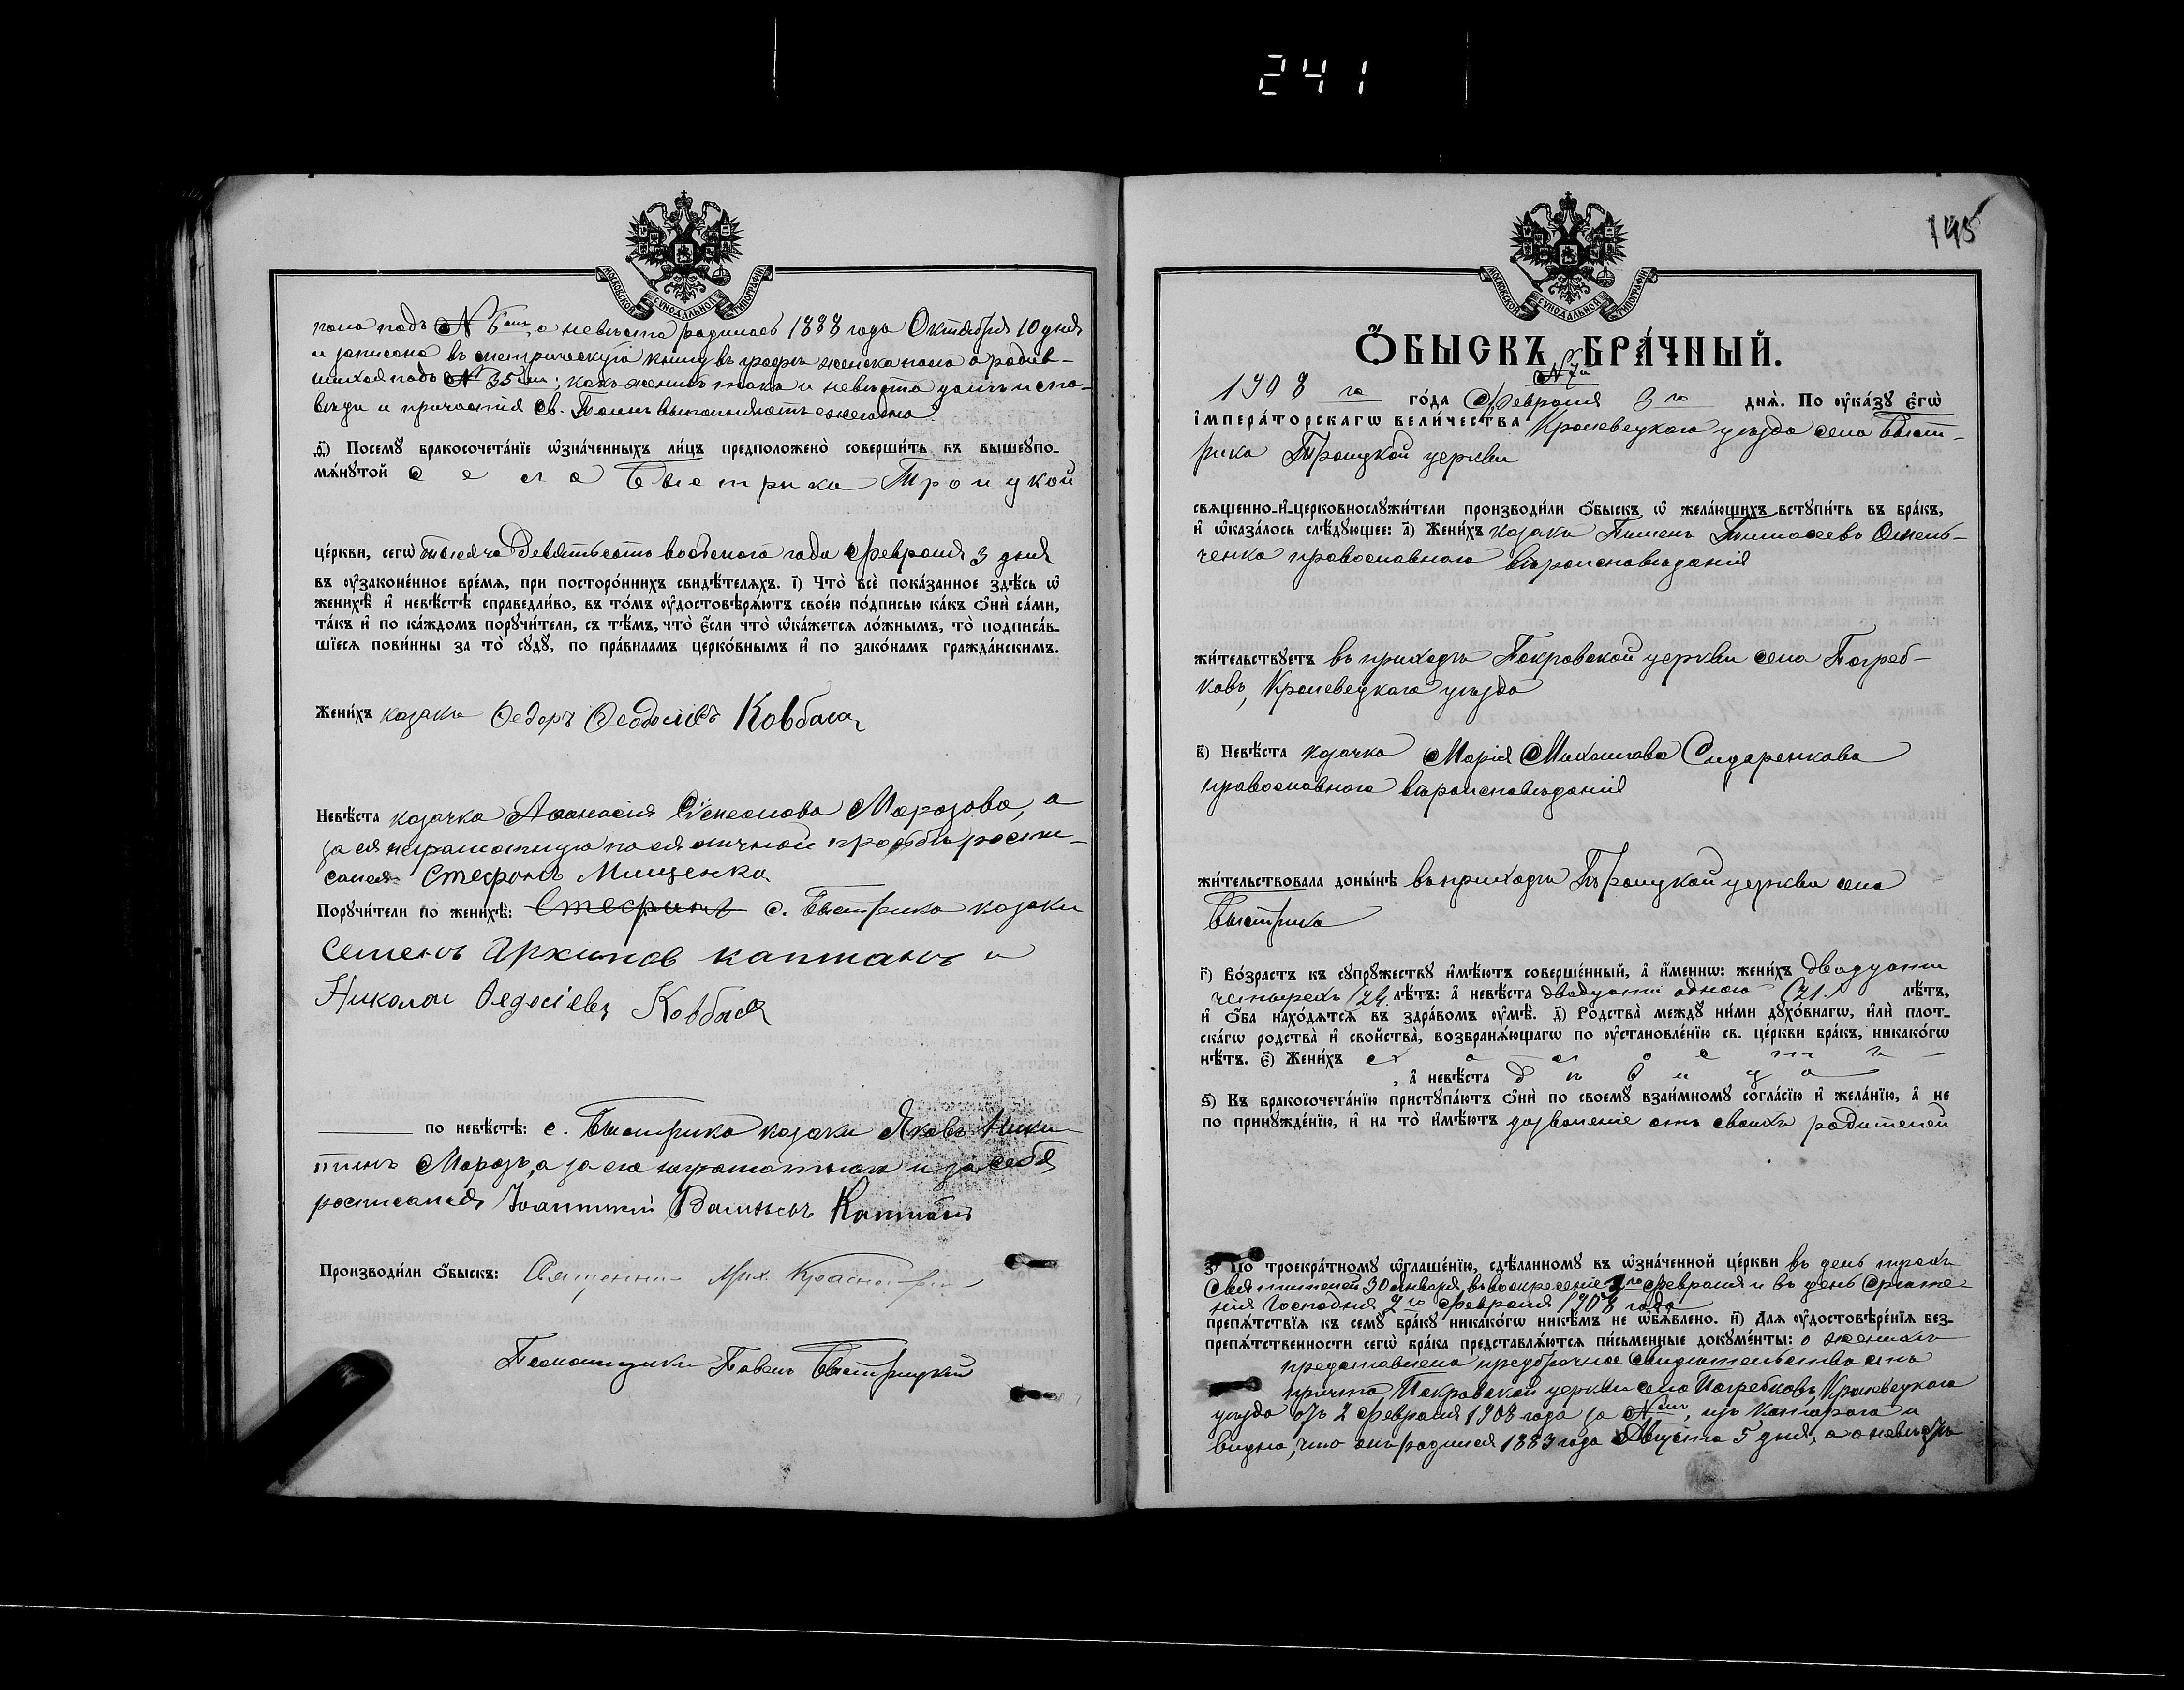 241
МОСКОВСКОЙ СѴНОДАЛЬНОЙ ТИПОГРАФІИ
пола подъ № 6 а невѣста родилась 1888 года Октября 10 дня
и записана въ метрическую книгу въ графѣ женска пола о родив-
шихся подъ № 35; какъ женихъ такъ и невѣста долгъ испо-
вѣди и причастія Св. Таинъ выполняютъ ежегодно.
д҃і) Посемꙋ бракосочета́нїе ѡ҆зна́ченныхъ ли́цъ предположено̀ соверши́ть въ вышеꙋпо-
мѧ́нꙋтой села Быстрика Троицкой
це́ркви, сегѡ̀ тысяча девятьсотъ восьмого года Февраля 3 дня
въ ᲂу҆законе́нное вре́мѧ, при посторо́ннихъ свидѣ́телѧхъ. і҃) Что̀ всѐ пока́занное здѣ́сь ѡ҆
женихѣ̀ и҆ невѣ́стѣ справедли́во, въ то́мъ ᲂу҆достовѣрѧ́ютъ свое́ю по́дписью ка́къ ѻ҆нѝ са́ми,
та́къ и҆ по ка́ждомъ порꙋчи́тели, съ тѣ́мъ, что̀ є҆́сли что̀ ѡ҆ка́жетсѧ ло́жнымъ, то̀ подписа́в-
шїесѧ пови́нны за то̀ сꙋдꙋ̀, по пра́виламъ церко́внымъ и҆ по зако́намъ гражда́нскимъ.
Жени́хъ казакъ Ѳедоръ Ѳеодосіевъ Ковбаса
Невѣ́ста козачка Аѳанасія Сѵмеонова Морозова, а
за ея неграмотную по ея личной просьбѣ распи-
сался Стефонъ Мищенко
Порꙋчи́тели по женихѣ̀: Стефинъ с. Быстрика козаки
Семенъ Архипов каптанъ и
Николай Ѳедосіевъ Ковбася
по невѣ́стѣ: с. Быстрика казаки Яковъ Ники-
тинъ Морозъ, а за его неграмотнаго и за себя
росписался Іоанникій Васильевъ Каптанъ
Производи́ли ѻ҆́быскъ: Священникъ
Псаломщикъ Павелъ Быстрицкій
145
МОСКОВСКОЙ СѴНОДАЛЬНОЙ ТИПОГРАФІИ
Ѻ҆́БЫСКЪ БРА́ЧНЫЙ.
№ 7й
1908 го го́да Февраля 3 го днѧ̀. По ᲂу҆ка́зꙋ є҆гѡ̀
і҆мпера́торскагѡ вели́чества Кролевецкаго уѣзда села Быст-
рика Троицкой церкви
свѧще́нно-и҆-церковнослꙋжи́тели производи́ли ѻ҆́быскъ ѡ҆ жела́ющихъ встꙋпи́ть въ бра́къ,
и҆ ѡ҆каза́лось слѣ́дꙋющее: а҃) Жени́хъ козакъ Пименъ Тимоѳеевъ Омель-
ченко православнаго вѣроисповѣданія
жи́тельствꙋетъ въ приходѣ Покровской церкви села Погреб-
ковъ, Кролевецкаго уѣзда
в҃) Невѣ́ста козачка Марія Михаилова Сидоренкова
православнаго вѣроисповѣданія
жи́тельствовала доны́нѣ въ приходѣ Троицкой церкви села
Быстрика
г҃) Во́зрастъ къ сꙋпрꙋ́жествꙋ и҆мѣ́ютъ соверше́нный, а҆ и҆́менно: жени́хъ двадцати
четырехъ (24 лѣ́тъ: а҆ невѣ́ста двадцати одного (21. лѣ́тъ,
и҆ ѻ҆́ба нахо́дѧтсѧ въ здра́вомъ ᲂу҆мѣ̀. д҃) Родства̀ междꙋ̀ ни́ми дꙋхо́внагѡ, и҆лѝ плот-
ска́гѡ родства̀ и҆ сво́йства, возбранѧ́ющагѡ по ᲂу҆становле́нїю св. це́ркви бра́къ, никако́гѡ
нѣ́тъ. є҃) Жени́хъ холостъ
, а҆ невѣ́ста дѣвица
ѕ҃) Къ бракосочета́нїю пристꙋпа́ютъ ѻ҆нѝ по своемꙋ̀ взаи́мномꙋ согла́сїю и҆ жела́нїю, а҆ не
по принꙋжде́нїю, и҆ на то̀ и҆мѣ́ютъ дозволеніе отъ своихъ родителей
з҃) По троекра́тномꙋ ѡ҆глаше́нїю, сдѣ́ланномꙋ въ ѡ҆зна́ченной це́ркви въ день трехъ
Святителей 30 января, въ воскресеніе Февраля и въ день Срѣте-
нія Господня 2го Февраля 1908 года
препѧ́тствїѧ къ семꙋ̀ бра́кꙋ никако́гѡ никѣ́мъ не ѡ҆б̾ѧ́влено. и҃) Длѧ ᲂу҆достовѣре́нїѧ без-
препѧ́тственности сегѡ̀ бра́ка представлѧ́ютсѧ пи́сьменные докꙋме́нты: о женихѣ
представлено предбрачное свидѣтельство отъ
причта Покровской церкви села Погребковъ, Кролевецкаго
уѣзда отъ 2 Февраля 1908 года за №, изъ котораго и
видно, что онъ родился 1883 года Августа 5 дня, а о невѣстѣ